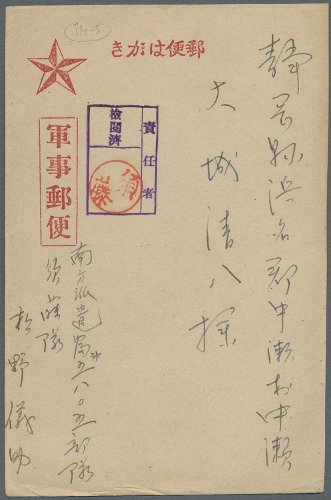 きがは便郵
静岡縣浜名郡中瀬村中瀬
大城清八様
軍事郵便
検閲済
責任者
須藤
南方派遣岡五八〇五部隊
須藤隊
松野儀助